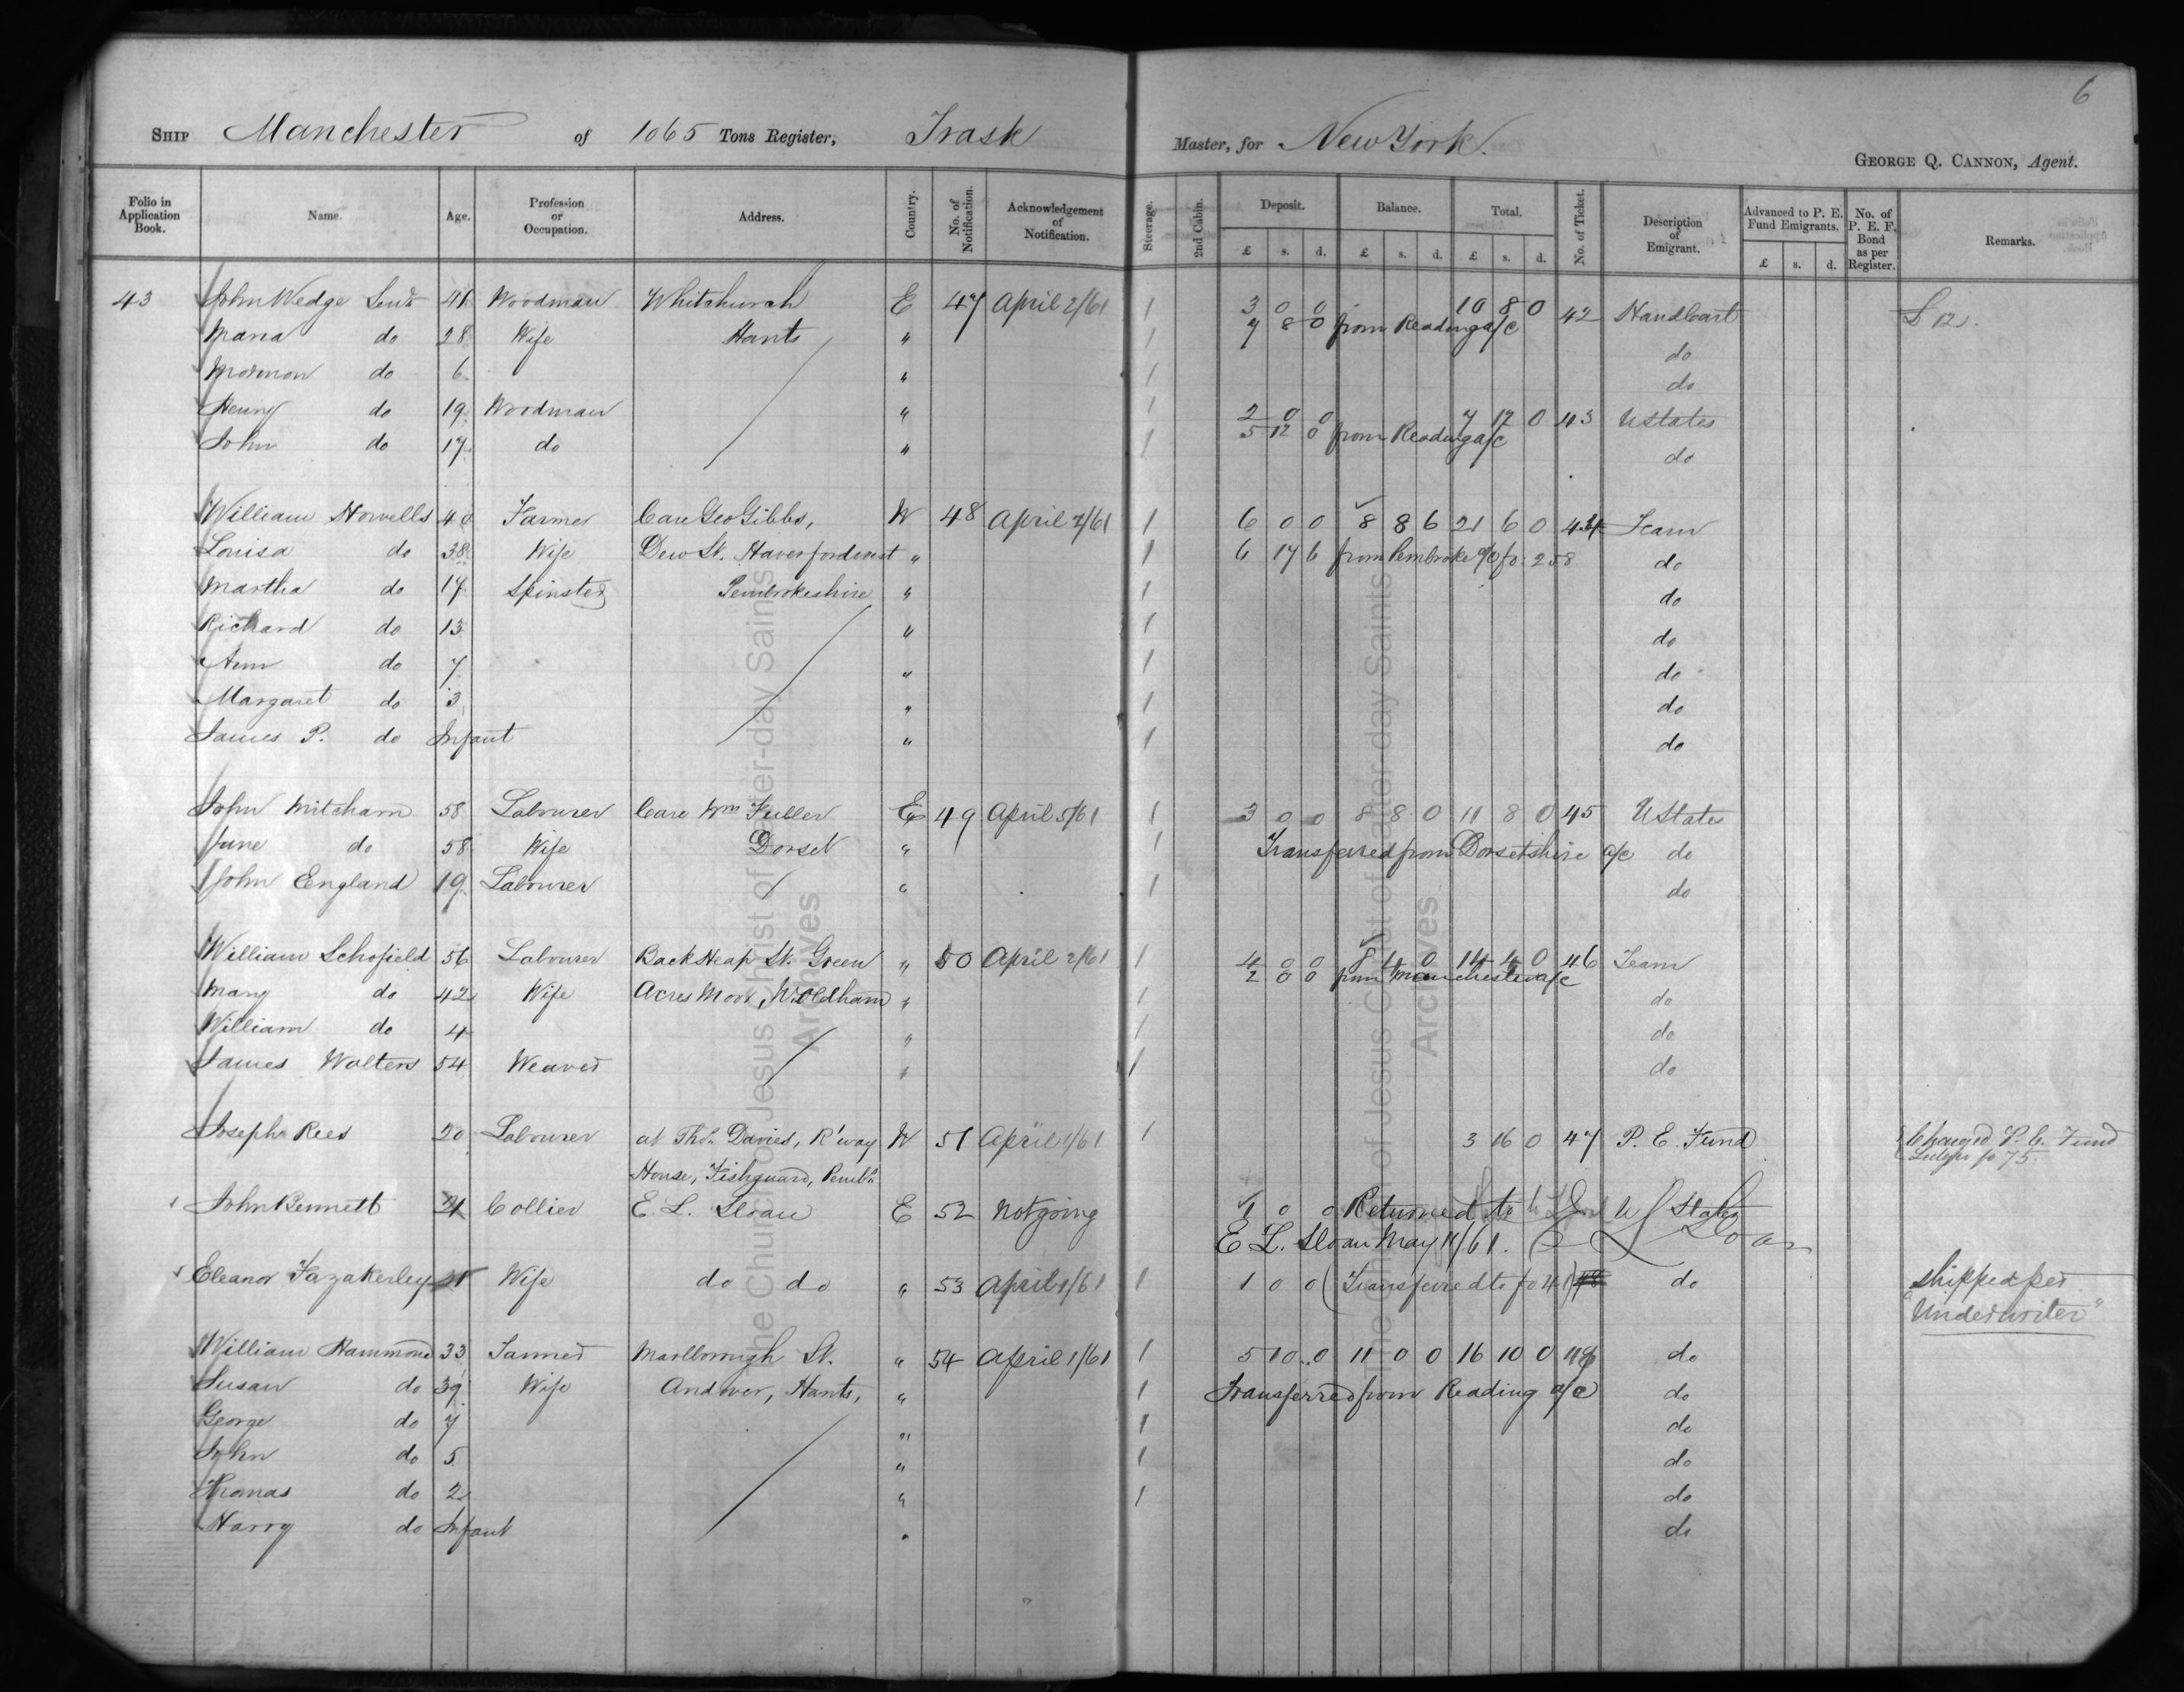 6
SHIP Manchester of 1065 Tons Register, Trask Master, for New York.
GEORGE Q. CANNON, Agent.
Folio in Application Book. Name. Age. Profession or Occupation. Address. Country. No. of Notification. Acknowledgement of Notification. Steerage. 2nd Cabin. Deposit. Balance. Total. No. of Ticket. Description of Emigrant. Advanced to P. E. Fund Emigrants. No. of P. E. F. Bond as per Register. Remarks.
£ s. d. £ s. d. £ s. d. £ s. d.
43 John Wedge Senr 41 Woodman Whitchurch E 47 April 2/61 1 3 0 0 10 8 0 42 HandCart £12.
Maria do 28 Wife Hants " 1 7 8 0 from Reading a/c do
Mormon do 6 " 1 do
Henry do 19 Woodman " 1 2 0 0 7 12 0 43 UStates
John do 17 do " 1 5 12 0 from Reading a/c do
William Howells 40 Farmer Care Geo Gibbs, W 48 April 2/61 1 6 0 0 8 8 6 21 6 0 44 Team
Louisa do 38 Wife Dew St. Haverfordwest " 1 6 17 6 from Pembroke a/c fo: 258 do
Martha do 17 Spinster Pembrokeshire " 1 do
Richard do 13 " 1 do
Ann do 7 " 1 do
Margaret do 3 " 1 do
James P. do Infant " 1 do
John Mitcham 58 Labourer Care Wm Fuller E 49 April 5/61 1 3 0 0 8 8 0 11 8 0 45 UStates
Jane do 58 Wife Dorset " 1 Transferred from Dorsetshire a/c do
John England 19 Labourer " 1 do
William Schofield 56 Labourer Back Heap St. Green " 50 April 2/61 1 4 0 0 8 4 0 14 4 0 46 Team
Mary do 42 Wife Acres Moor, Nr Oldham " 1 2 0 0 from Manchester a/c do
William do 4 " 1 do
James Wolters 54 Weaver " 1 do
Joseph Rees 20 Labourer at Thos. Davies, R'way W 51 April 1/61 1 3 16 0 47 P. E. Fund Charged P. E. Fund
House, Fishguard, Pemb. fo 75.
John Bennett 21 Collier E. L. Sloan E 52 Not going 1 0 0 Returned to U States
E. L. Sloan May 11/61.
Eleanor Fazakerley 21 Wife do do " 53 April 1/61 1 1 0 0 (Transferred to fo 41) 48 do Shipped per
"Underwriter"
William Hammond 33 Tanner Marlborough St. " 54 April 1/61 1 5 10 0 11 0 0 16 10 0 48 do
Susan do 39 Wife Andover, Hants, " 1 Transferred from Reading a/c do
George do 7 " 1 do
John do 5 " 1 do
Thomas do 2 " 1 do
Harry do Infant " do
The Church of Jesus Christ of Latter-day Saints
Archives
The Church of Jesus Christ of Latter-day Saints
Archives